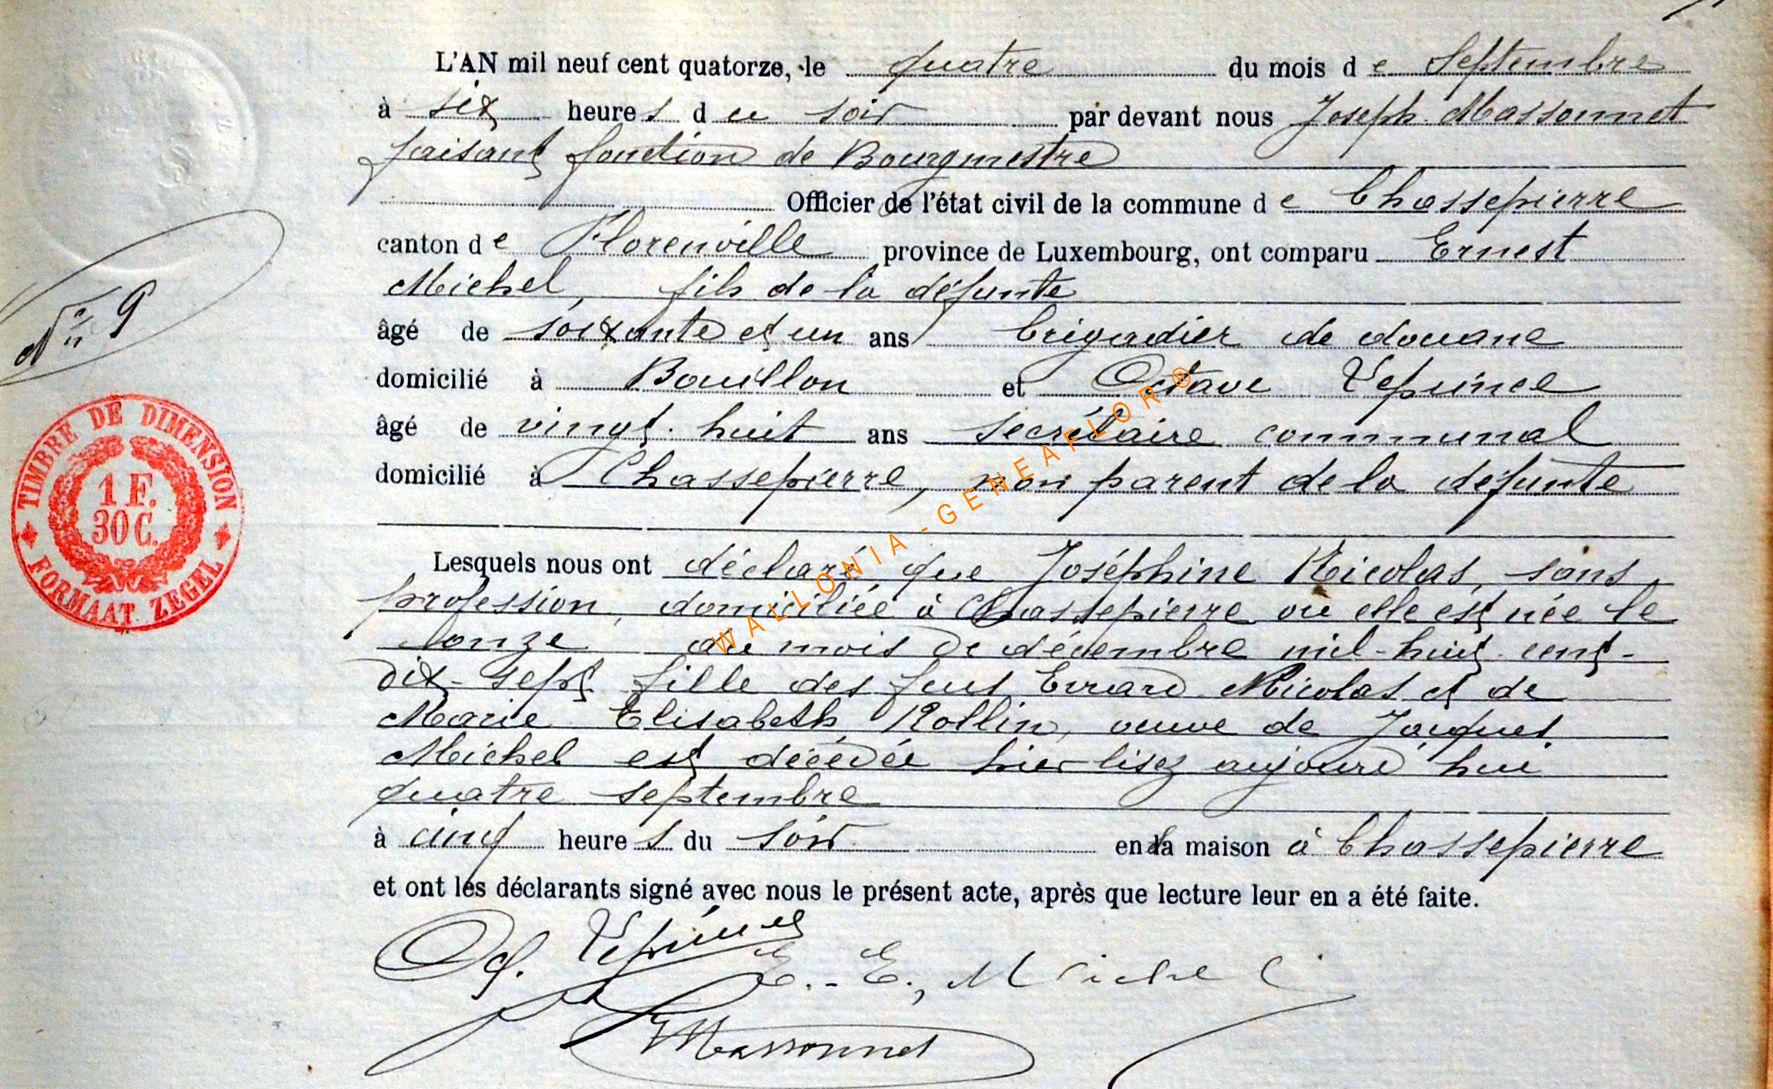 L'AN mil neuf cent quatorze, le quatre du mois de Septembre
à six heures du soir par devant nous Joseph Massonnet
faisant fonction de Bourgmestre
Officier de l'état civil de la commune de Chassepierre
canton de Florenville province de Luxembourg, ont comparu Ernest
Michel, fils de la défunte
âgé de soixante et un ans brigadier de douane
domicilié à Bouillon et Octave Lepinée
âgé de vingt-huit ans secrétaire communal
domicilié à Chassepierre, non parent de la défunte
N° 9
TIMBRE DE DIMENSION
1 F.
30 C.
FORMAAT ZEGEL
Lesquels nous ont déclaré que Joséphine Nicolas, sans
profession, domiciliée à Chassepierre où elle est née le
onze du mois de décembre mil-huit-cent-
dix-sept fille des feus Errard Nicolas et de
Marie Elisabeth Rollin, veuve de Jacques
Michel est décédée hier lisez aujourd'hui
quatre septembre
à cinq heures du soir en sa maison à Chassepierre
et ont les déclarants signé avec nous le présent acte, après que lecture leur en a été faite.
E. E. Michel
Massonnet
WALLONIA-GENEAFLOR®